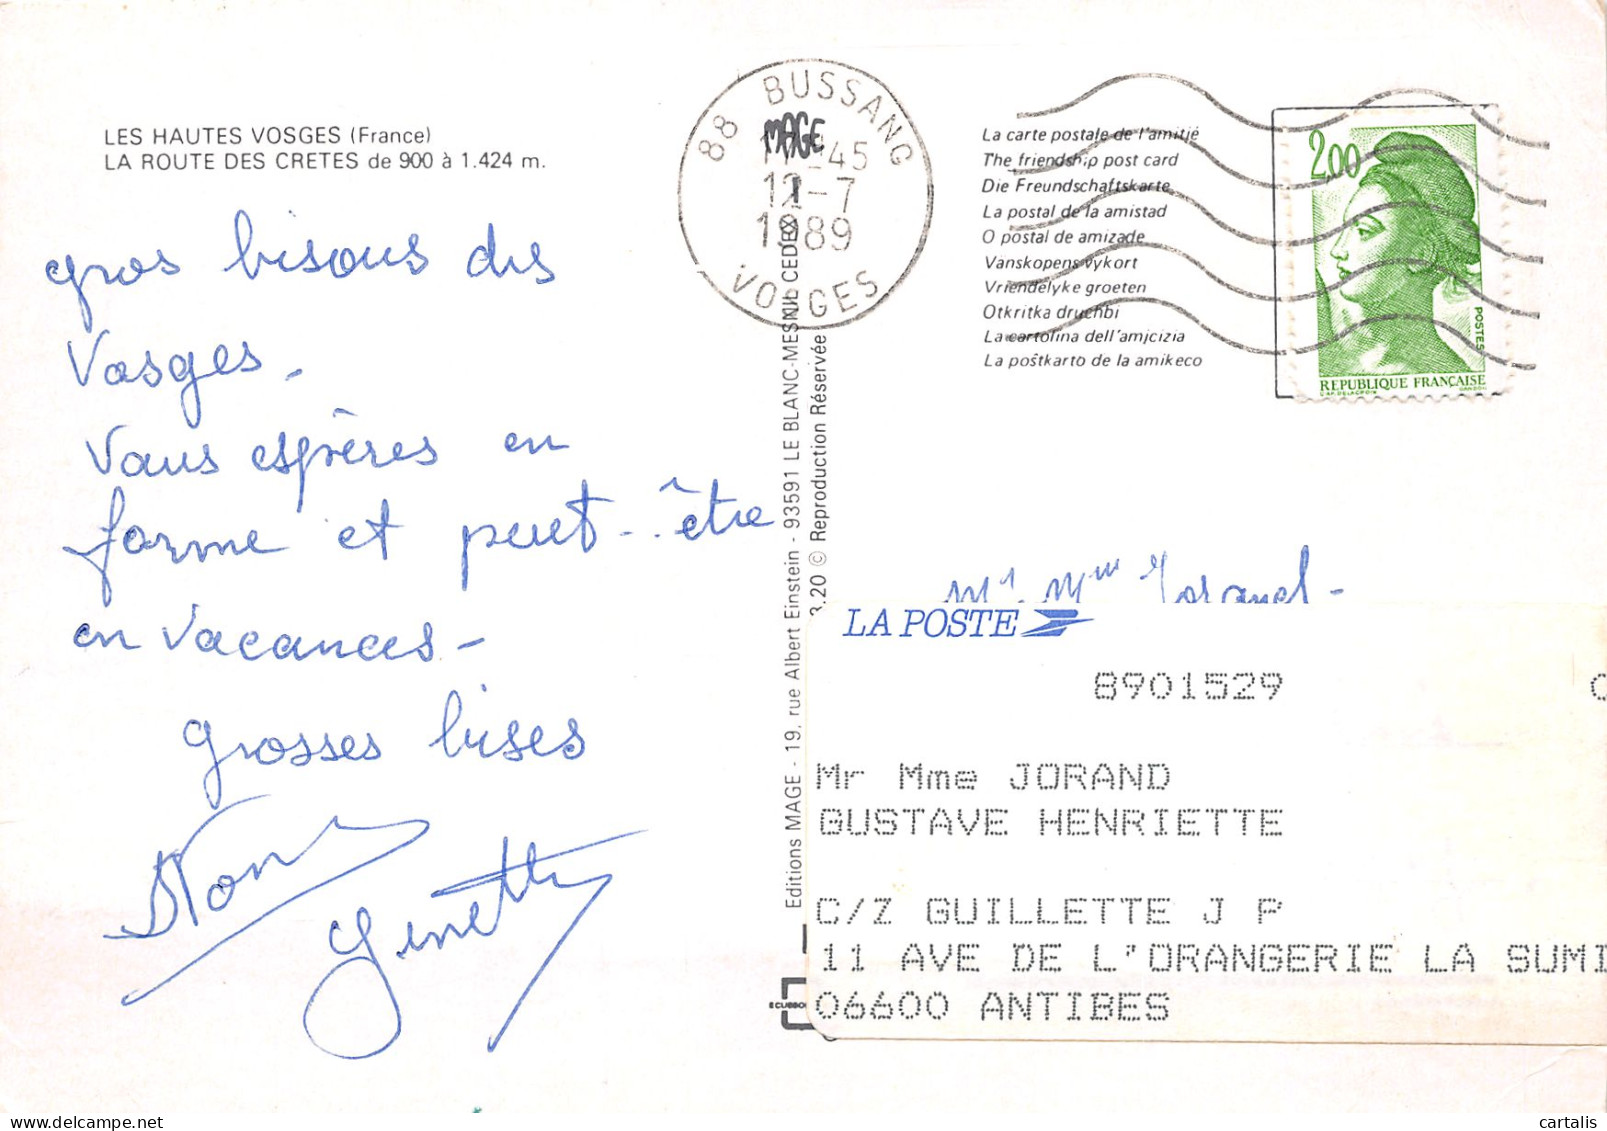 LES HAUTES VOSGES (France)
LA ROUTE DES CRETES de 900 à 1.424 m.
gros bisous des
Vosges -
Vous espères en
forme et peut-être
en vacances -
grosses bises
Ginette
88 BUSSANG
MAGE
45
12-7
1989
VOSGES
Editions MAGE - 19, rue Albert Einstein - 93591 LE BLANC-MESNIL CEDEX
3.20 © Reproduction Réservée
La carte postale de l'amitié
The friendship post card
Die Freundschaftskarte
La postal de la amistad
O postal de amizade
Vanskopens vykort
Vriendelyke groeten
Otkritka druchbi
La cartolina dell'amicizia
La poŝtkarto de la amikeco
2,00
POSTES
REPUBLIQUE FRANÇAISE
D'AP. DELACROIX GANDON
Mr. Mme Jorand -
LA POSTE
8901529
Mr Mme JORAND
GUSTAVE HENRIETTE
C/Z GUILLETTE J P
11 AVE DE L'ORANGERIE LA SUMI
06600 ANTIBES
cartalis